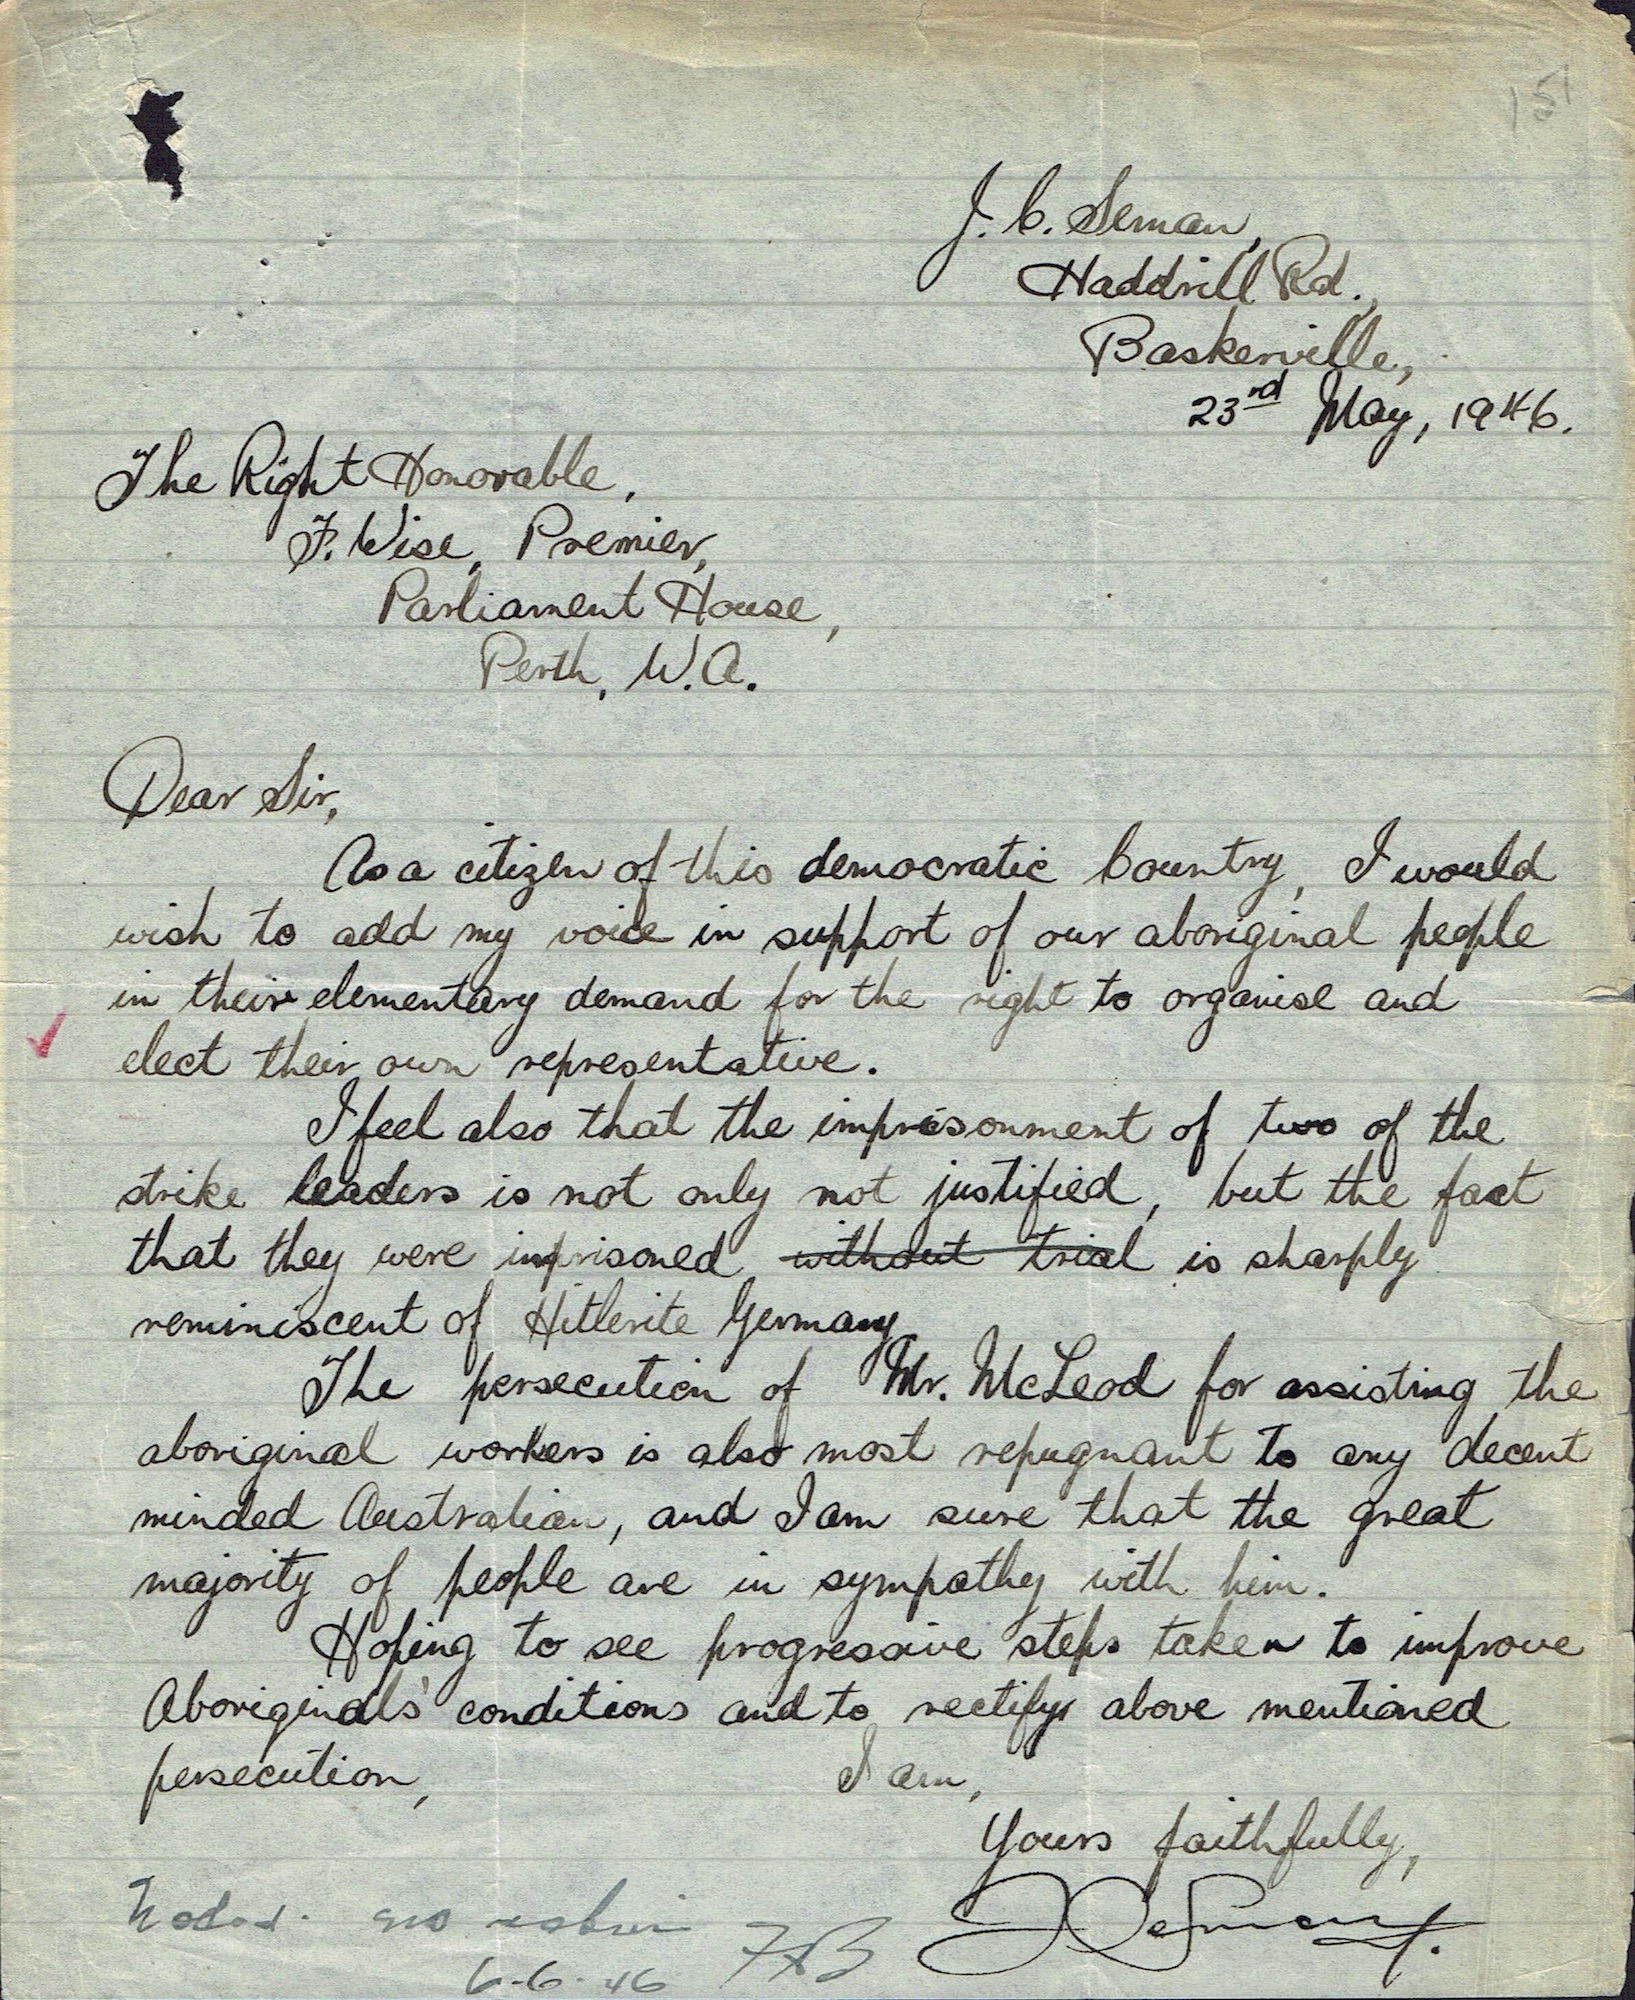 151
J. C. Seman,
Haddrill Rd.,
Baskerville,
23rd May, 1946.
The Right Honorable,
F. Wise, Premier,
Parliament House,
Perth, W.A.
Dear Sir,
As a citizen of this democratic Country, I would
wish to add my voice in support of our aboriginal people
in their elementary demand for the right to organise and
elect their own representative.
I feel also that the imprisonment of two of the
strike leaders is not only not justified, but the fact
that they were imprisoned without trial is sharply
reminiscent of Hitlerite Germany
The persecution of Mr. McLeod for assisting the
aboriginal workers is also most repugnant to any decent
minded Australian, and I am sure that the great
majority of people are in sympathy with him.
Hoping to see progressive steps taken to improve
Aboriginals' conditions and to rectify above mentioned
persecution, I am,
Yours faithfully,
J C Seman
Noted. no
6-6-46